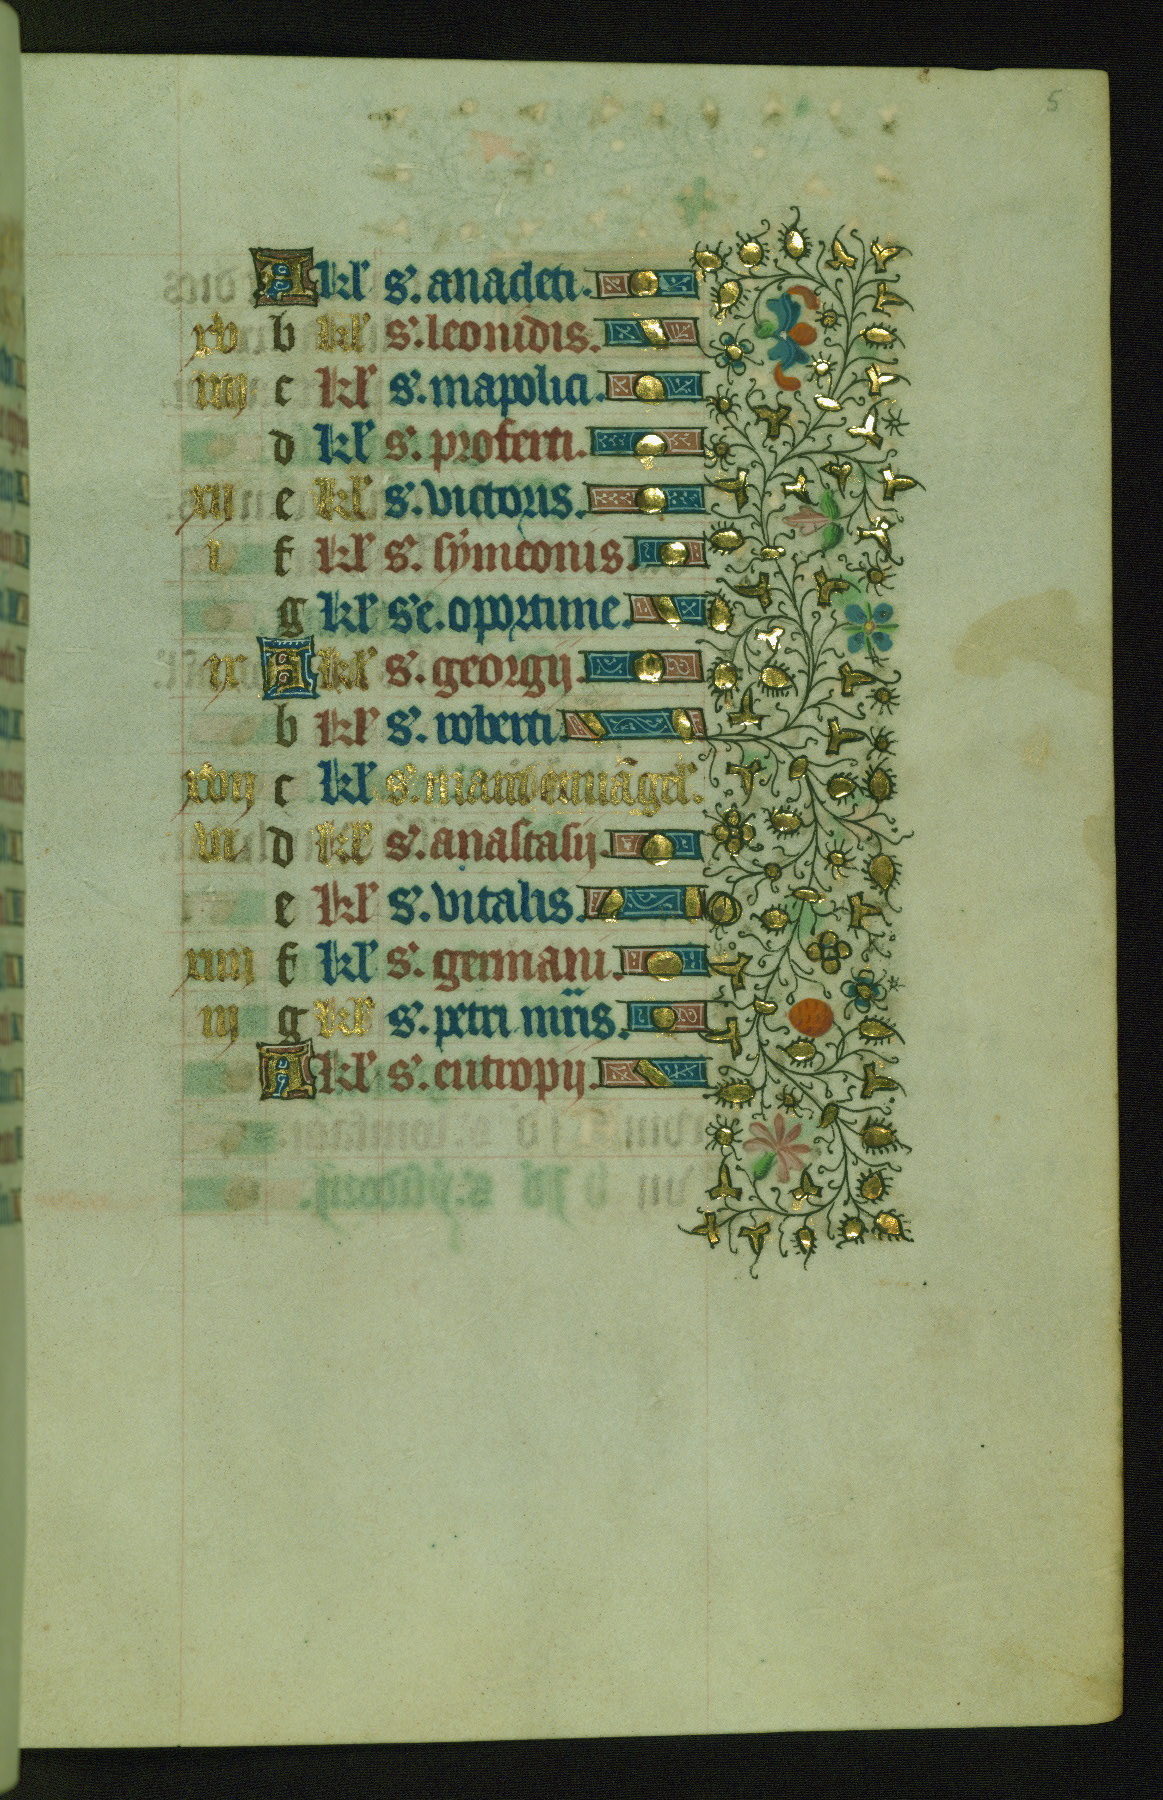 5
A kl' s. anacleti.
xv b kl' s. leonidis.
iiii c kl' s. mapolici.
d kl' s. proferti.
xii e kl' s. victoris.
i f kl' s. symeonis.
g kl' se. oportune.
ix A kl' s. georgij.
b kl' s. roberti
xvii c kl' s. marci
vi d kl' s. anastasij.
e kl' s. vitalis.
xiiii f kl' s. germani.
iii g kl' s. petri mris.
A kl' s. eutropij.